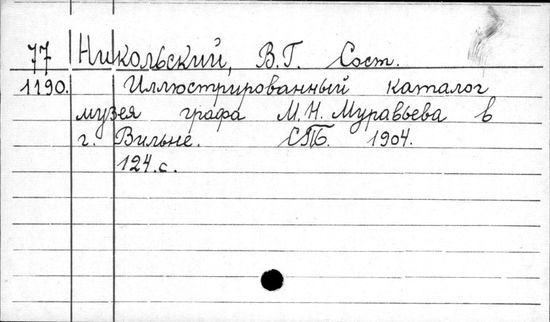 77 Никольский, В.Г. Сост.
1190. Иллюстрированный каталог
музея графа М.Н. Муравьева в
г. Вильне. СПБ. 1904.
124.с.